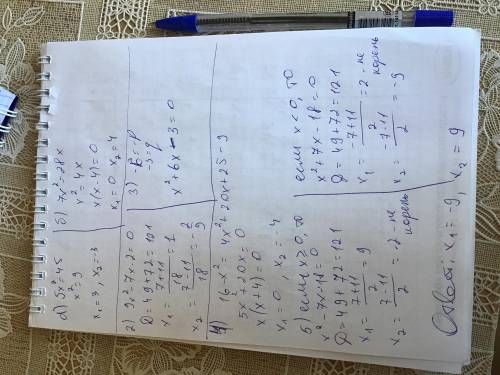 а) 5x²=45
x²=9
x₁=3, x₂=-3
б) 7x²=28x
x²=4x
x(x-4)=0
x₁=0 x₂=4
2) 9x²-7x-2=0
D=49+72=121
x₁ = 7+11/18 = 1
x₂ = 7-11/18 = -2/9
3) -6=p
-3=q
x²+6x-3=0
4) 16-x²=4x²+20x+25-9
5x²+20x=0
x(x+4)=0
x₁=0, x₂=-4
5) если x≥0, то
x²-7x-18=0
D=49+72=121
x₁ = 7+11/2 = 9
x₂ = 7-11/2 = -2 - не
корень
если x<0, то
x²+7x-18=0
D=49+72=121
x₁ = -7+11/2 = 2 - не
корень
x₂ = -7-11/2 = -9
Ответ: x₁=-9, x₂=9